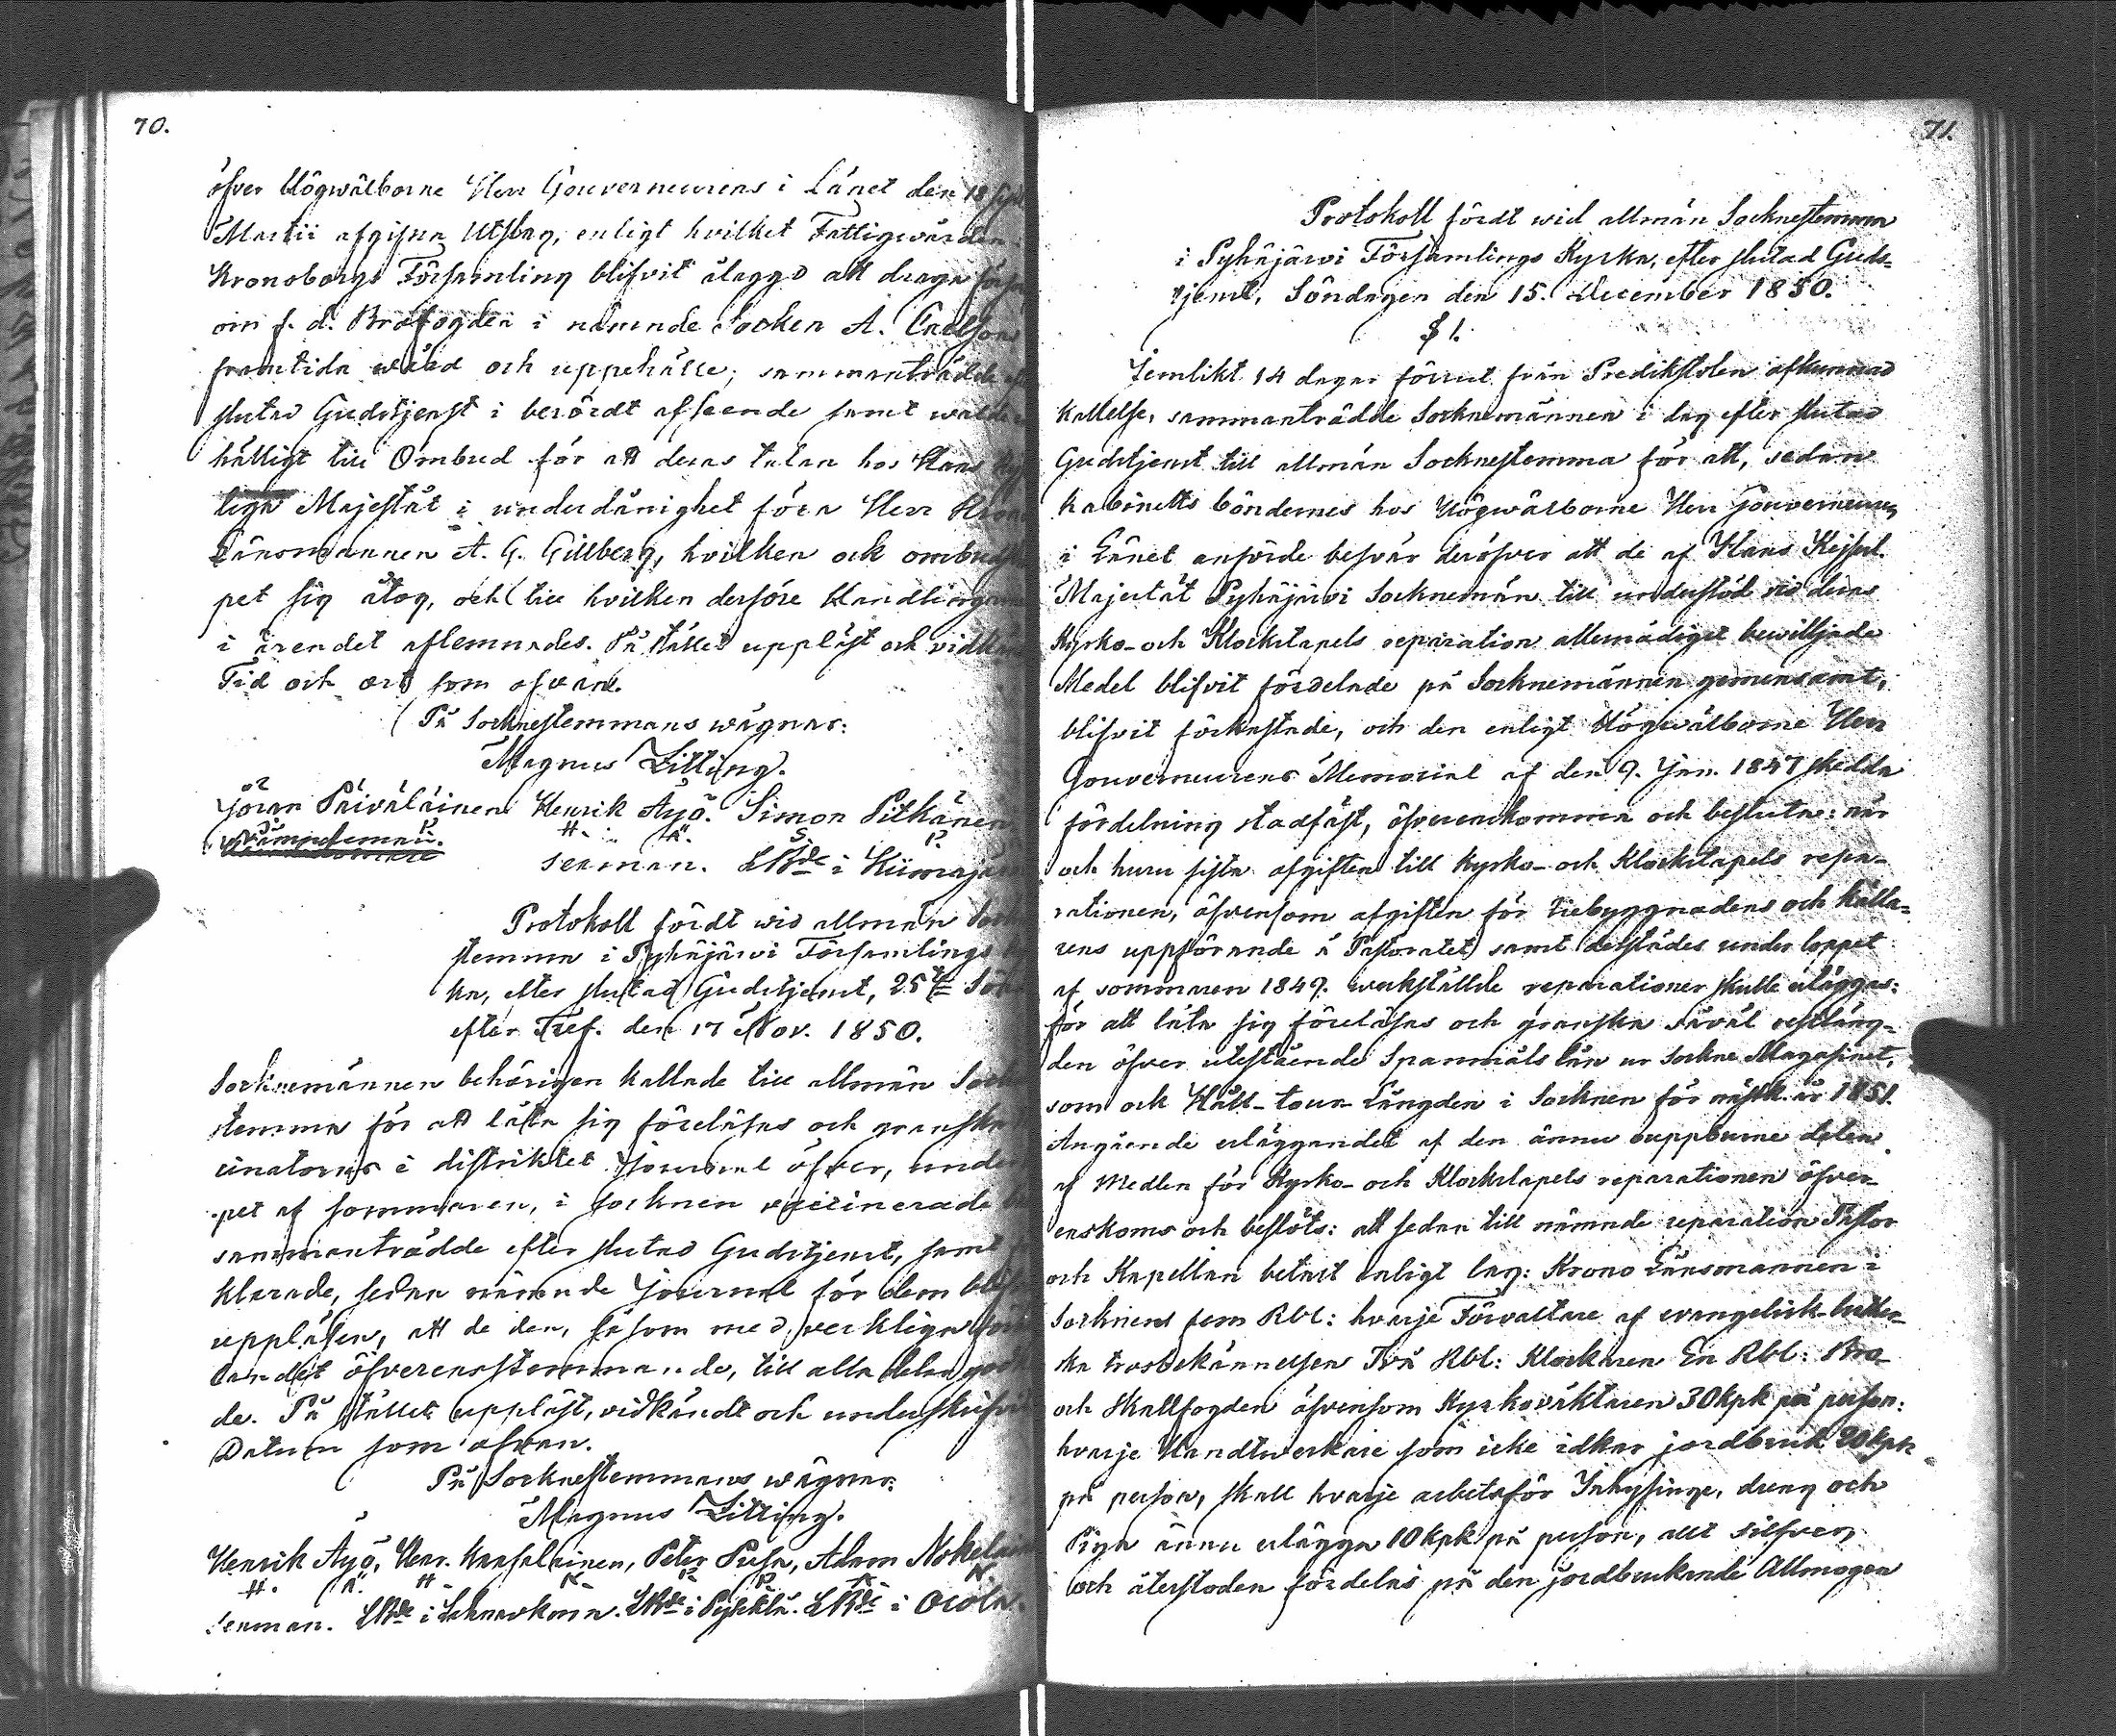 70.
öfver Högwälborne Herr Gouverneurens i Länet den 18
Martii afgifna Utslag, enligt hvilket Fattigvården
Kronoborgs Församling blifvit ålaggd att draga
om f. d. Brofogden i nämnde Socken A.
framtida wård och uppehälle; sammanträdde
slutad Gudstjenst i berördt afseende samt walde
hälligt till Ombud för att deras talan hos Hans
liga Majestät i underdånighet föra Herr Krono
Länsmannen A. G. Gillberg, hvilken ock ombud
pet sig åtog, och till hvilken derföre Handlingarne
i ärendet aflemnades. På stället uppläst och
Tid och ort som ofvan.
På Socknestemmans wägnar:
Magnus Zitting.
Jöran Päiväläinen Henrik Äyö. Simon Pitkänen
H. Ä. S. P.
Sexman. LBde i
Protokoll fördt wid allmän
stemma i Pyhäjärwi Församlings
ka, efter slutad Gudstjenst, 25te
efter Tref. den 17 Nov. 1850.
Socknemännen behörigen kallade till allmän
stemma för att låta sig föreläsas och granska
cinatorns i distriktet Journal öfver, unde
pet af sommaren, i socknen vaccinerade
sammanträdde efter slutad Gudstjenst, samt
klarade, sedan nämnde Journal för dem
uppläsen, att de den, såsom med verkliga
landet öfverensstemmande, till alla delar
de. På stället uppläst, vidkändt och underskrifvit
Datum som ofvan.
På Socknestemmans wägnar:
Magnus Zitting.
Henrik Äyö, Henr. Kansalainen, Peter Pusa, Adam
H. Ä. H K P. P. A. N.
Sexman. LBde i LBde i LBde i
71.
Protokoll fördt wid allmän Socknestemma
i Pyhäjärwi Församlings Kyrka, efter slutad Guds-
tjenst, Söndagen den 15. December 1850.
§ 1.
Jemlikt 14 dagar förrut från Predikstolen afkunnad
kallelse, sammanträdde Socknemännen i dag efter slutad
Gudstjenst till allmän Socknestemma för att, sedan
kabinetts böndernes hos Högwälborne Herr Gouverneuren
i Länet anförde besvär deröfver att de af Hans Kejserl.
Majestät Pyhäjärwi Socknemän till understöd vid deras
Kyrko- och Klockstapels reparation allernådigst bewilljade
Medel blifvit fördelade på Socknemännen gemensamt,
blifvit förkastade, och den enligt Högwälborne Herr
Gouverneurens Memorial af den 9. Jan. 1847 skedda
fördelning stadfäst, öfverenskomma och besluta: när
och huru sista afgiften till Kyrko- och Klockstapels repa-
rationen, äfvensom afgiften för Riebyggnadens och källa-
rens uppförande å Pastoratet samt derstädes under loppet
af sommaren 1849. werkställde reparationer skulle erläggas:
för att låta sig föreläsas och granska såväl restläng-
den öfver utestående Spannmåls lån ur Sockne Magasinet,
som ock Håll-tour-Längden i Socknen för nästk. år 1851.
Angående erläggandet af den ännu ouppburne delen
af Medlen för Kyrko- och Klockstapels reparationen öfver-
enskoms och beslöts: att sedan till nämnde reparation Pastor
och Kapellan betalt enligt lag: Krono Länsmannen i
Socknen fem Rbl: hvarje Förvaltare af evangelisk-luther-
ska trosbekännelsen Två Rbl: Klockaren En Rbl: Bro-
och Skallfogden äfvensom Kyrkoväktaren 30 kpk på person:
hvarje Handtwerkare som icke idkar jordbruk 20 kpk
på person, skall hvarje arbetsför Inhysinge, dreng och
Piga ännu erlägga 10 kpk på person, allt silfver,
och återstoden fördelas på den jordbrukande Allmogen